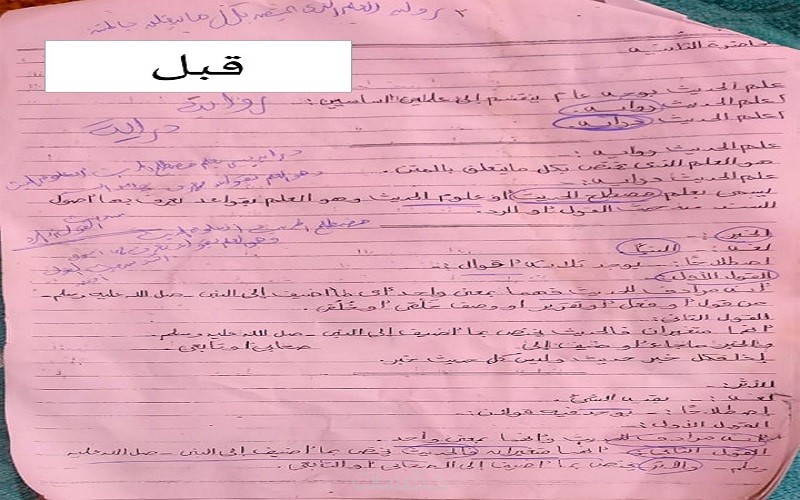 ٢ رواية العلم الذي يختص بكل ما يتعلق بالمتن
قبل
محاضرة الثانية
علم الحديث بوجه عام ينقسم إلى علمين أساسيين:
رواية
١علم الحديث رواية.
٢علم الحديث دراية.
دراية
علم الحديث رواية :-
هو العلم الذي يختص بكل ما يتعلق بالمتن.
علم الحديث دراية :-
يسمى بعلم مصطلح الحديث أو علوم الحديث وهو العلم بقواعد تعرف بها أصول
السند من حيث القبول أو الرد.
الخبر :-
لغة :- النبأ
اصطلاحًا :- يوجد ثلاثة أقوال :-
القول الأول :-
أنه مرادف للحديث فهما بمعنى واحد أي ما أضيف إلى النبي - صل الله عليه وسلم -
من قول أو فعل أو تقرير أو وصف خَلقي أو خُلقي.
القول الثاني :-
أنهما متغيران فالحديث يختص بما أضيف إلى النبي - صل الله عليه وسلم
والخبر ما جاء أو ضيف إلى صحابي أو تابعي.
إذا فكل خبر حديث وليس كل حديث خبر.
الأثر :-
لغة :- بقية الشئ.
اصطلاحًا :- يوجد فيه قولان :-
القول الأول :-
أنه مرادف للحديث وأنهما بمعنى واحد.
القول الثاني :- أنهما متغيران فالحديث يختص بما أضيف إلى النبي - صل الله عليه
وسلم - والأثر يختص بما أضيف إلى الصحابي أو التابعي.